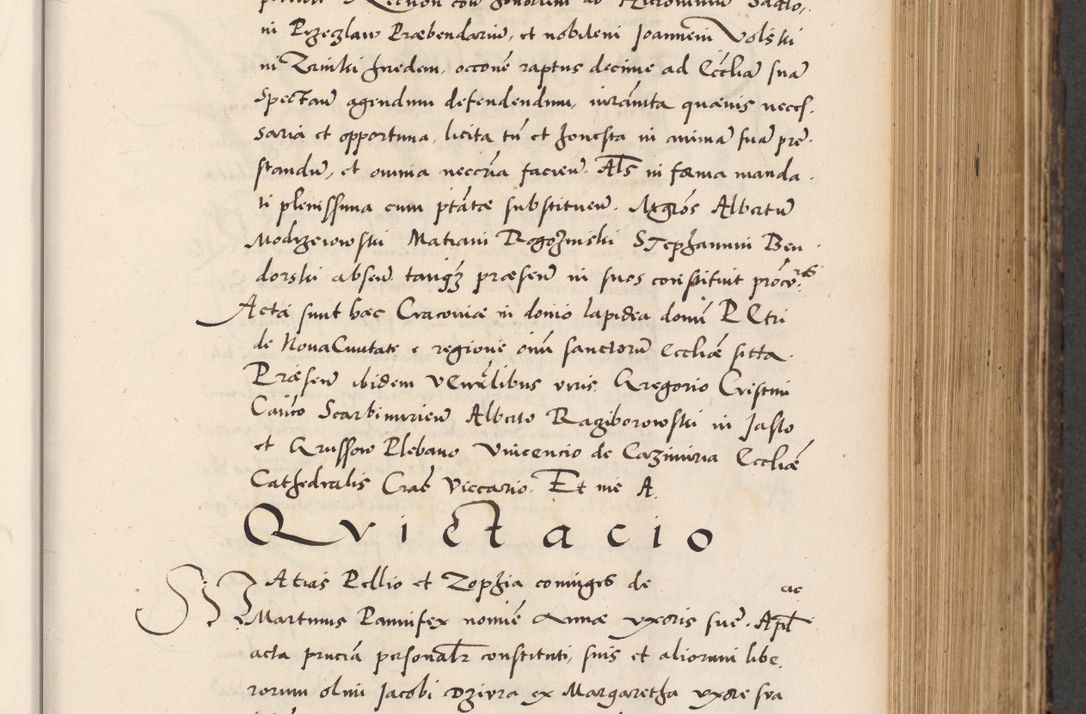 ni Przezlaw Præbendariu, et nobilem Joannem Volski
in Zrinski hredem, occõne raptus decime ad Ecclia sua
Spectan agendum defendendum, iurãnta quævis neces.
saria et opportuna, licita tñ et honesta in anima sua pre.
standu, et omnia neccria facien. Als in forma manda.
ti plenissima cum ptãtæ substituen. Mgros Albertu
Modrzeiowski Matiam Rogozinski Stephanum Ben.
dorski absen tanqz præsen in suos constituit procres
Acta sunt hæc Cracoviæ in domo lapidea domi PEtri
de NovaCivitate e regione omi sanctoru Eccliæ sitta.
Præsen ibidem VEnrlibus viris Gregorio Cristini
Cano Scarbimirien Alberto Raziborowski in Jaslo
et Grussow Plebano Vincencio de Cazimiria Eccliæ
Cathedralis Crac Viccario. Et me A.
QVICTacio
Matias Pellio et Zophia coniuges de etc
Martinus Pannifex nomie Annæ uxoris suæ. Apd
acta pncia personalr constituti, suis et aliorum libe,
rorum olim Jacobi Dzivra ex Margaretha uxore sua